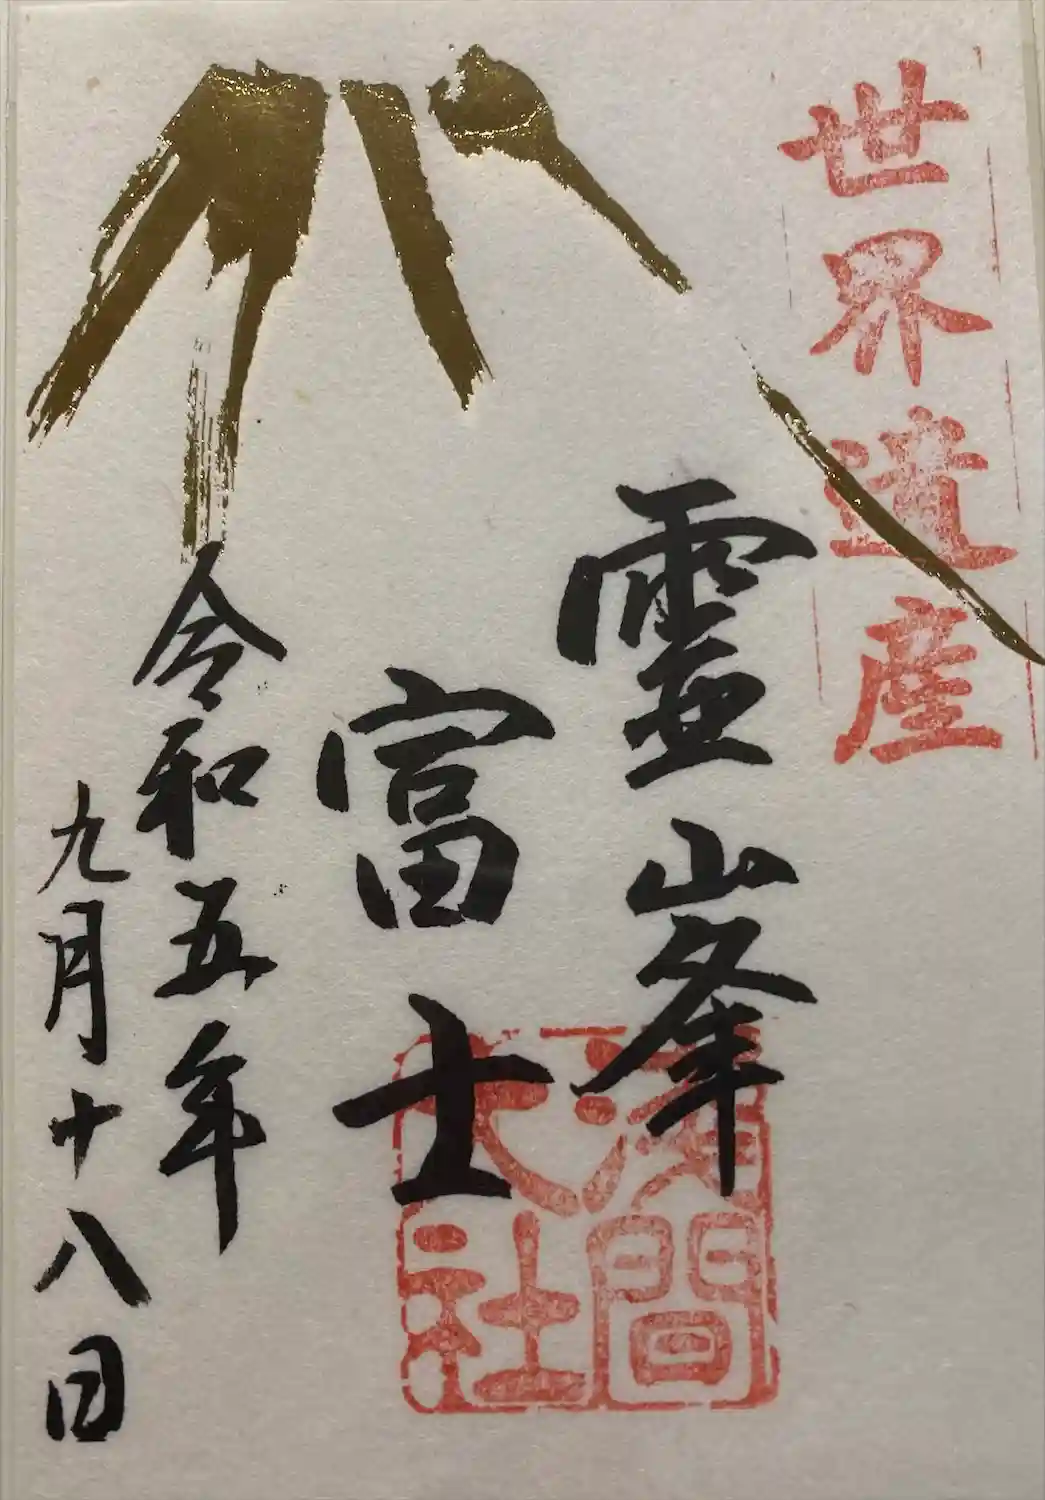 世界遺産
霊峯
富士
浅間大社
令和五年
九月十八日